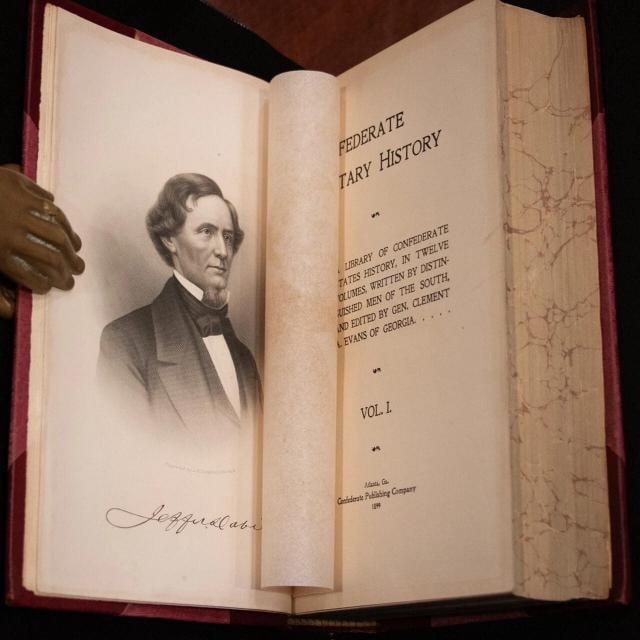 Jeffer Davi
FEDERATE
TARY HISTORY
LIBRARY OF CONFEDERATE
TATES HISTORY, IN TWELVE
VOLUMES, WRITTEN BY DISTIN-
UISHED MEN OF THE SOUTH,
AND EDITED BY GEN. CLEMENT
A. EVANS OF GEORGIA. . . . .
VOL. I.
Atlanta, Ga.
Confederate Publishing Company
1899